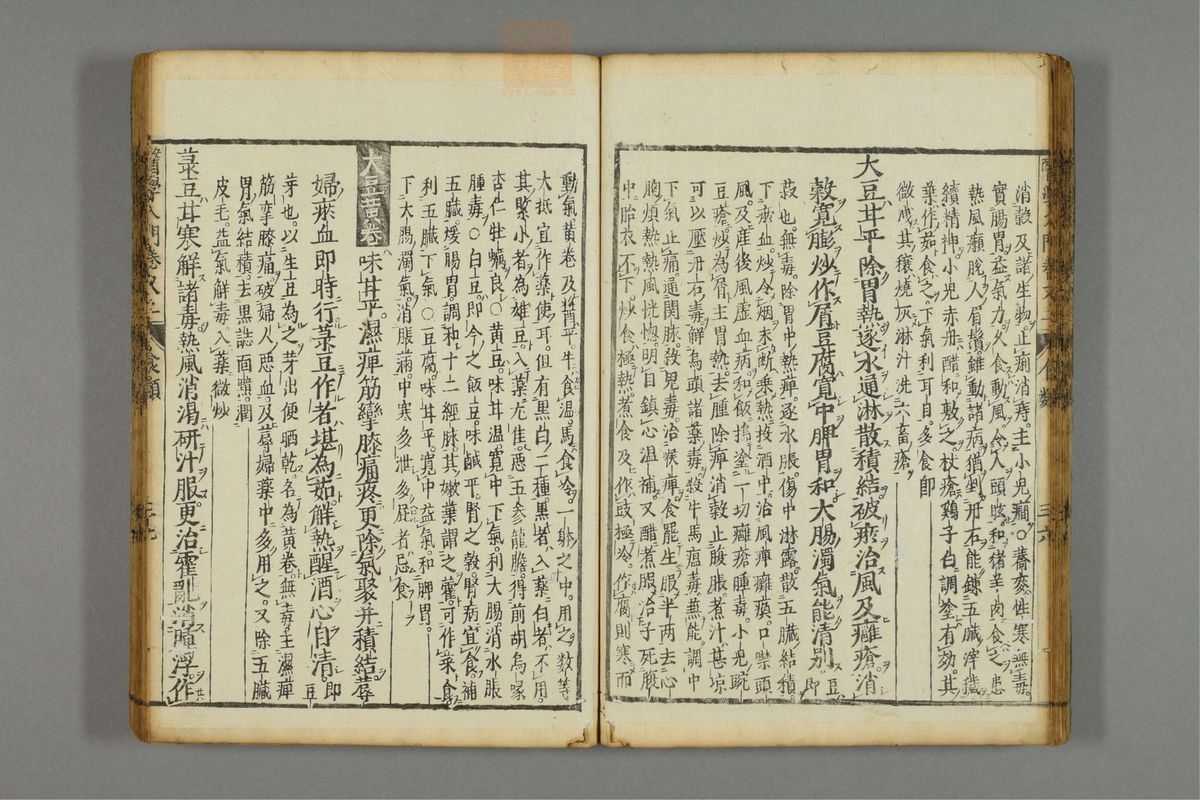 消穀及諸生物止痢消痔主小兒癇○蕎麥性寒無毒
實腸胃益氣力久食動風令人頭眩和猪羊肉食之患
熱風癩脫人眉鬚雖動諸病猶剉丹石能鍊五臟滓穢
續精神小兒赤丹醋和敷之杖瘡鷄子白調塗有効其
葉作茹食之下氣利耳目多食即
微泄其穰燒灰淋汁洗六畜瘡
大豆甘平除胃熱逐水通淋散積結破瘀治風及癰瘡消
穀寛膨炒作屑豆腐寛中脾胃和大腸濁氣能清別即豆
菽也無毒除胃中熱痺逐水脹傷中淋露散五臟結積
下瘀血炒令烟未斷乗熱投酒中治風痺癱瘓口噤頭
風及産後風虚血病和飯搗塗一切癰瘡腫毒小兒豌
豆瘡炒為屑主胃熱去腫除痺消穀止腹脹煮汁甚凉
可以壓丹石毒解烏頭諸藥毒殺牛馬瘟毒無能調中
下氣止痛通關脉發兒毒治喉痺食罷生服半両去心
胸煩熱熱風恍惚明目鎮心温補又醋煮服治子死腹
中胎衣不下炒食極熱煮食及作豉極冷作腐則寒而
動氣黄卷及醤平牛食温馬食冷一躰之中用之数等
大抵宜作藥使耳但有黒白二種黒者入藥白者不用
其緊小者為雄豆入藥尤佳惡五參龍膽得前胡烏喙
杏仁牡蠣良○黄豆味甘温寛中下氣利大腸消水脹
腫毒○白豆即今之飯豆味鹹平腎之穀腎病宜食補
五臟煖腸胃調和十二經脉其嫩葉謂之藿可作菜食
利五臟下氣○豆腐味甘平寛中益氣和脾胃
下大腸濁氣消脹滿中寒多泄多屁者忌食
大豆黄卷味甘平濕痺筋攣膝痛疼更除氣聚并積結蓐
婦瘀血即時行菉豆作者堪為茹解熱醒酒心自清即豆
芽也以生豆為之芽出便晒乾名為黄卷無毒主濕痺
筋攣膝痛破婦人惡血及蓐婦藥中多用之又除五臟
胃氣結積去黒誌面䵟潤
皮毛益氣解毒入藥微炒
菉豆甘寒解諸毒熱風消渇研汁服更治霍亂消腫浮作
醫學入門卷之二 食類